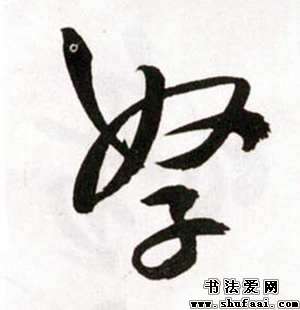 孥
书法爱网
www.shufaai.com